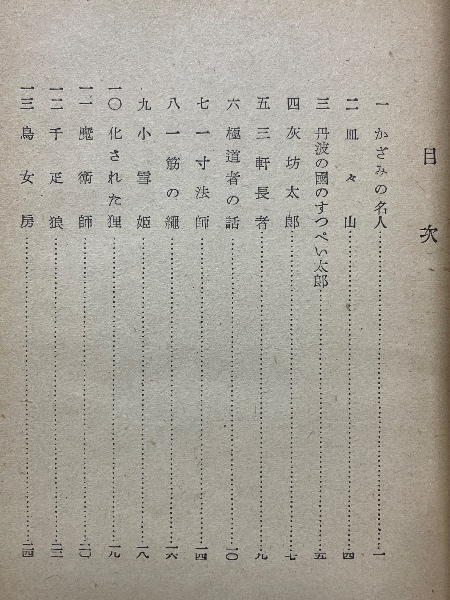 目次
一 かざみの名人……一
二 皿々山……四
三 丹波の國のすつぺい太郎……五
四 灰坊太郎……七
五 三軒長者……九
六 極道者の話……一〇
七 一寸法師……一四
八 一筋の繩……一六
九 小雪姫……一八
一〇 化された狸……一九
一一 魔術師……二〇
一二 千疋狼……二三
一三 鳥女房……二四